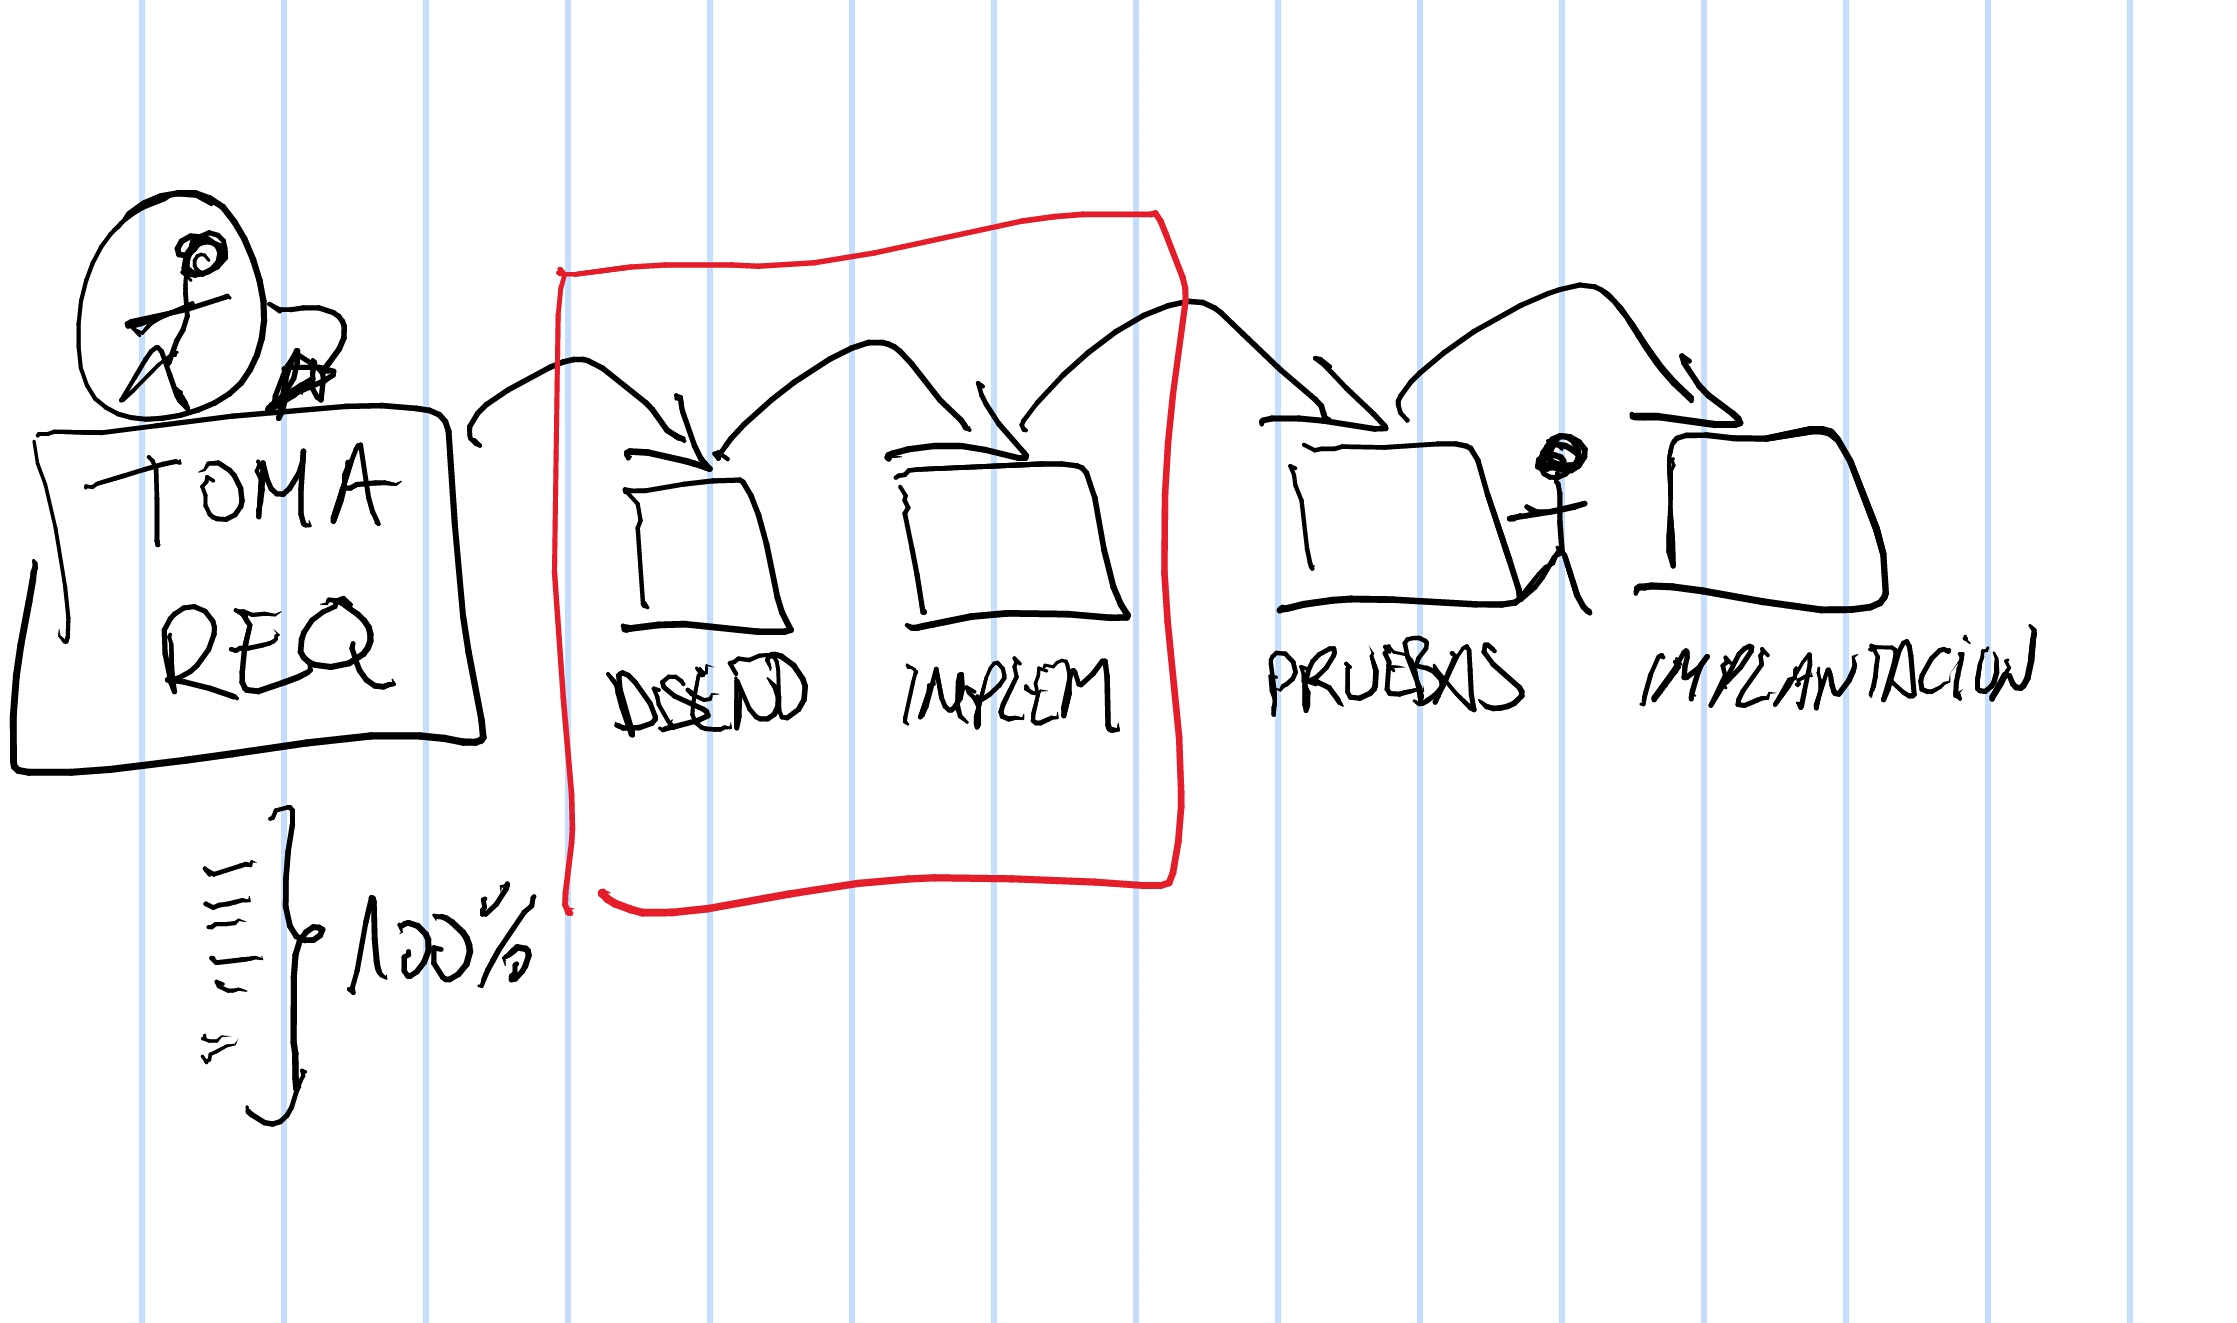 TOMA
REQ
DISEÑO IMPLEM PRUEBAS IMPLANTACION
100%